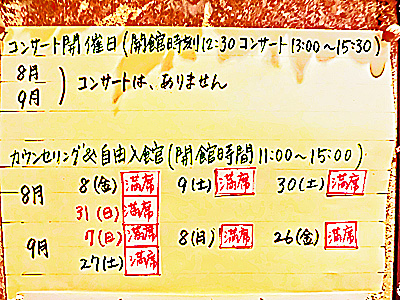 コンサート開催日(開館時刻12:30 コンサート13:00〜15:30)
8月
9月 ) コンサートは、ありません
カウンセリング&自由入館(開館時間11:00〜15:00)
8月 8(金) 満席 9(土) 満席 30(土) 満席
31(日) 満席
9月 7(日) 満席 8(日) 満席 26(金) 満席
27(土) 満席